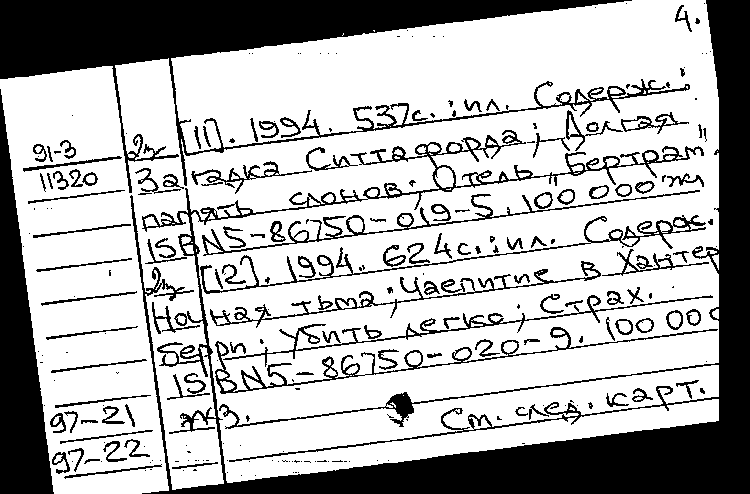 4.
[11]. 1994. 537с.: ил. Содерж.:
91-3 2э
11320 Загадка Ситтафорда; Долгая
память слонов; Отель „Бертрам".
ISBN5-86750-019-5. 100 000
2э [12]. 1994. 624с.: ил. Содерж.:
Ночная тьма; Чаепитие в Хантер
берри; Убить легко; Страх.
ISBN5-86750-020-9. 100 000
97-21 экз.
См. след. карт.
97-22